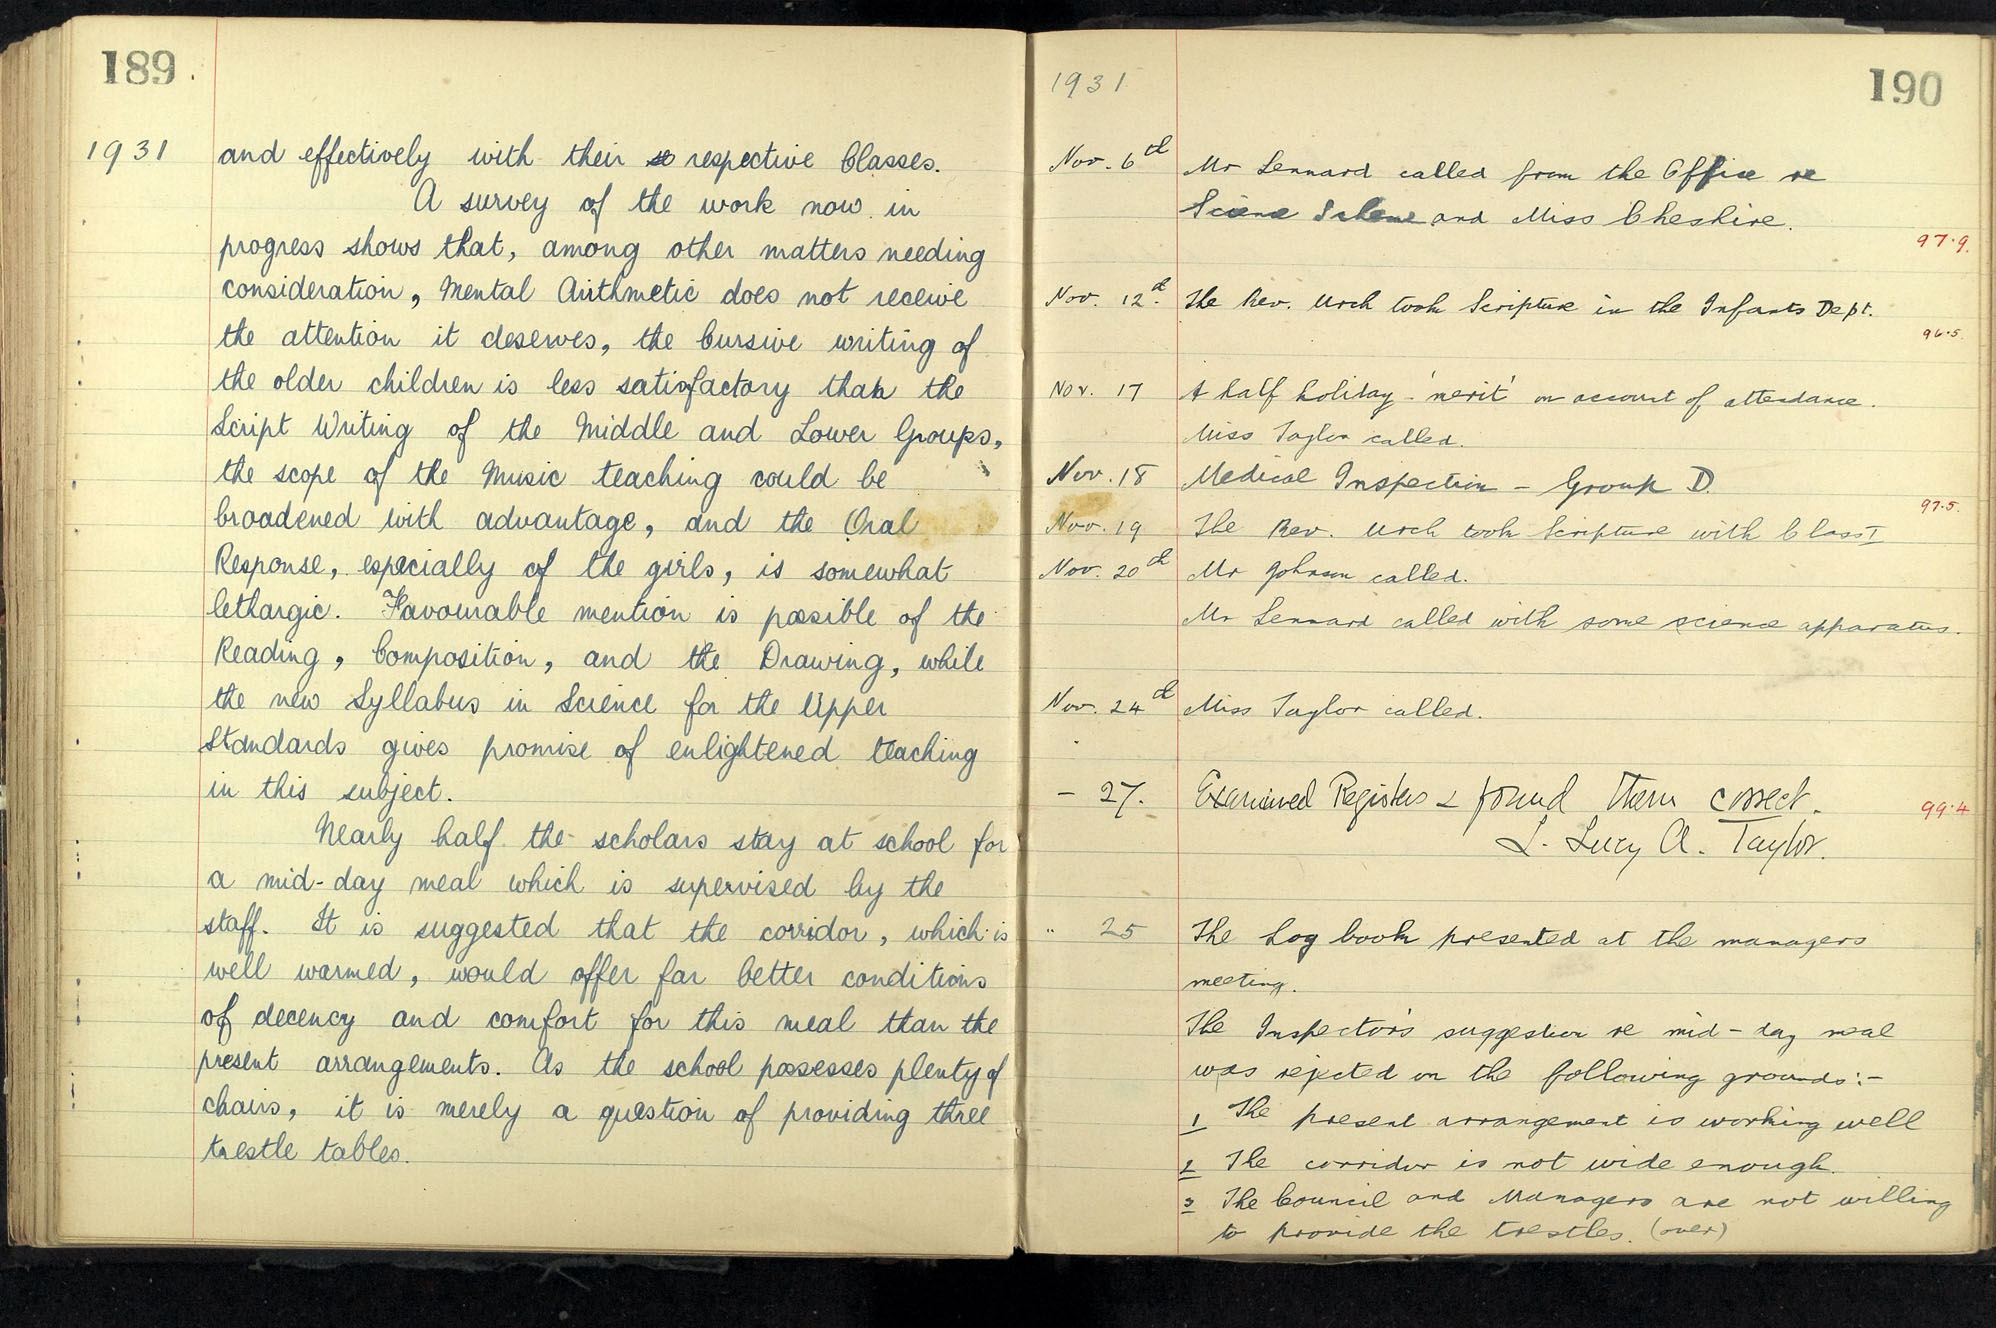 189
1931
and effectively with their respective Classes.
A survey of the work now in
progress shows that, among other matters needing
consideration, Mental Arithmetic does not receive
the attention it deserves, the Cursive writing of
the older children is less satisfactory than the
Script Writing of the Middle and Lower Groups,
the scope of the Music teaching could be
broadened with advantage, and the Oral
Response, especially of the girls, is somewhat
lethargic. Favourable mention is possible of the
Reading, Composition, and the Drawing, while
the new Syllabus in Science for the Upper
Standards gives promise of enlightened teaching
in this subject.
Nearly half the scholars stay at school for
a mid-day meal which is supervised by the
staff. It is suggested that the corridor, which is
well warmed, would offer far better conditions
of decency and comfort for this meal than the
present arrangements. As the school possesses plenty of
chairs, it is merely a question of providing three
trestle tables.
1931
190
Nov. 6th Mr Lennard called from the Office re
Science Scheme and Miss Cheshire.
97.9.
Nov. 12th. The Rev. Urch took Scripture in the Infants Dept.
96.5.
Nov. 17 A half holiday - 'merit' on account of attendance.
Miss Taylor called.
Nov. 18 Medical Inspection - Group D.
97.5.
Nov. 19 The Rev. Urch took Scripture with Class I
Nov. 20th Mr Johnson called.
Mr Lennard called with some science apparatus.
Nov. 24th Miss Taylor called.
- 27. Examined Registers & found them correct.
99.4
L. Lucy A. Taylor.
" 25 The Log book presented at the managers
meeting.
The Inspector's suggestion re mid-day meal
was rejected on the following grounds:-
1 The present arrangement is working well
2 The corridor is not wide enough.
3 The Council and Managers are not willing
to provide the trestles. (over)